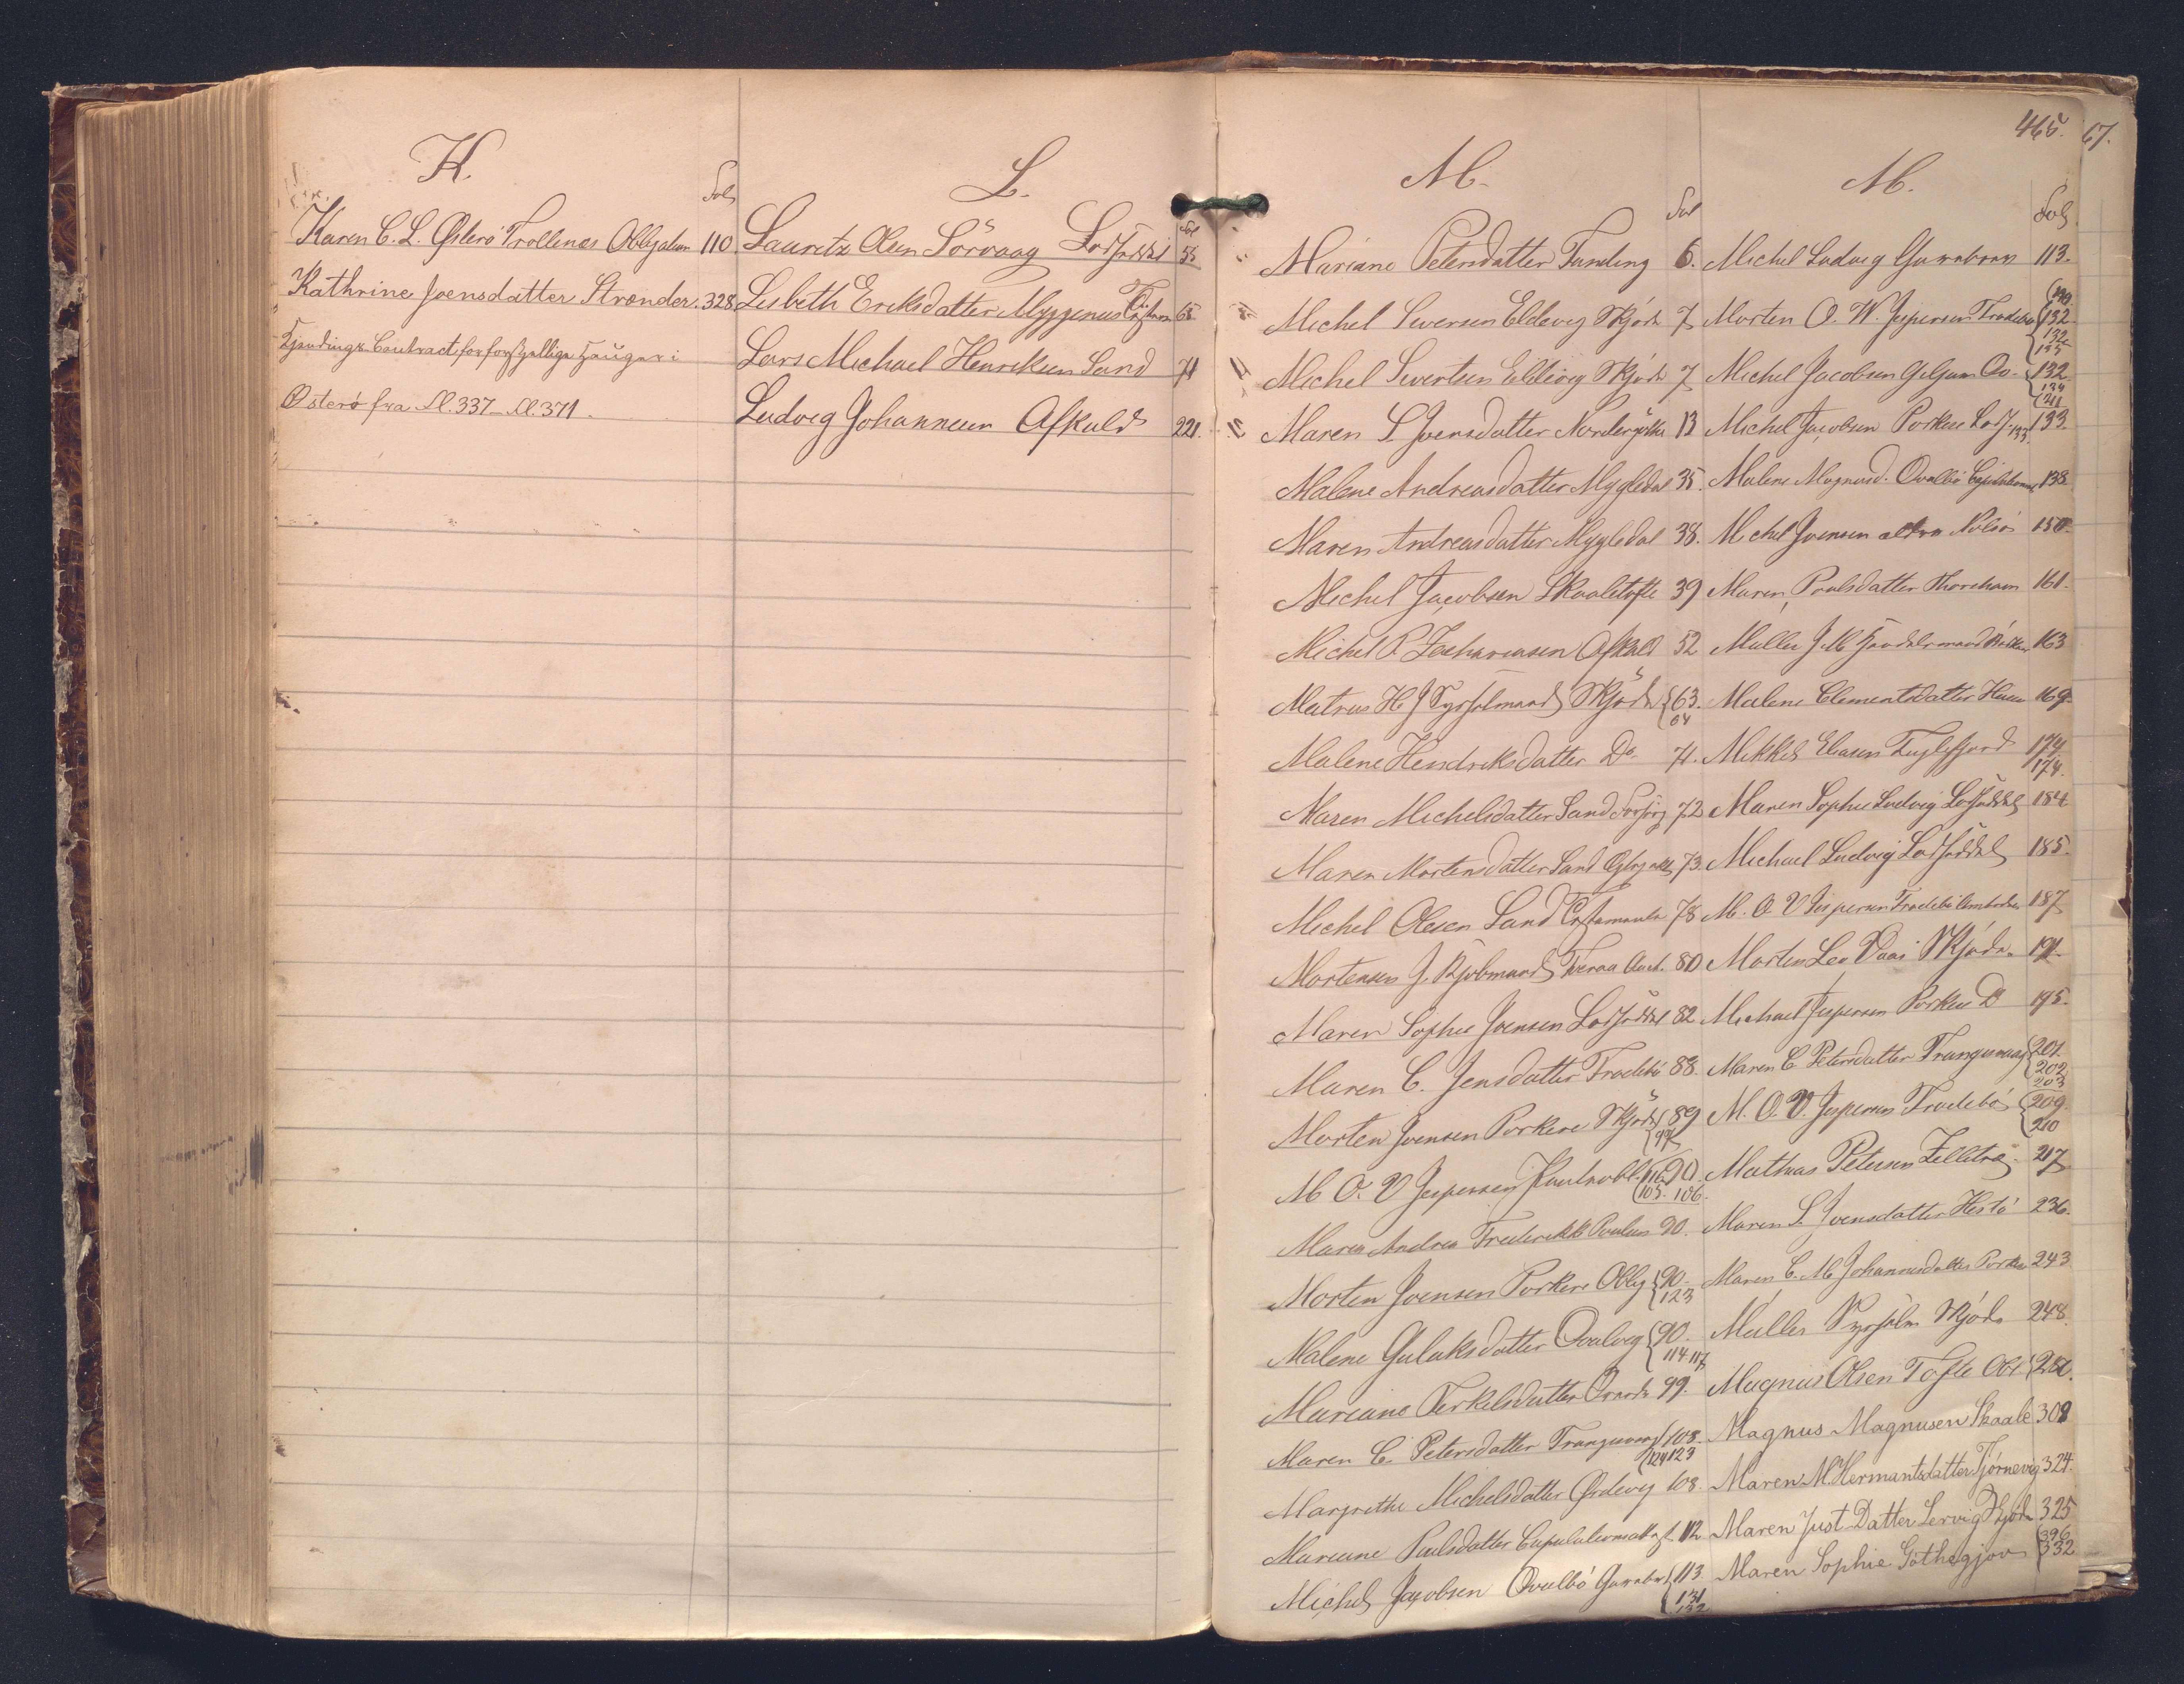 K.
Fol
Karen C. L. Østerö Trollenes Obligation 110
Kathrine Joensdatter Strænder. 328
Fredings Contract for forskjellige Hauger i
Østerö fra Fl. 337 - Fl. 371.
L.
Fol
Lauritz Olsen Sörvaag Lodseddel 55
Lisbeth Eriksdatter Myggenæs 65
Lars Michael Henriksen Sand 71
Ludvig Johannesen Afkald 221.
465.
67.
M.
Fol
Mariane Petersdatter Funding 6.
Michel Siversen Eldevig Skjöde 7
Michel Sivertsen Eldevig Skjöde 7
Maren S. Joensdatter Nordergöthe 13
Malene Andreasdatter Mygledal 35.
Maren Andreasdatter Mygledal 38.
Michel Jacobsen Skaaletofte 39
Michel P. Zachariasen Afkald 52
Matras H J Sysselmand Skjöde 63. 64
Malene Hendriksdatter Do. 71.
Maren Michelsdatter Sand 72
Maren Mortensdatter Sand 73.
Michel Olesen Sand Testamente 78
Mortensen J. Kjöbmand Tveraa Auct. 80
Maren Sophie Joensen Lodseddel 82
Maren C. Jensdatter Frodebö 88.
Morten Joensen Porkere Skjöde 89
M. O. V Jespersen 90. 105. 106.
Maren Andrea Frederikke Poulsen 90.
Morten Joensen Porkere Oblig 90. 123
Malene Guluksdatter Qvalvig 90. 114 117
Mariane Terkelsdatter 99.
Maren C. Petersdatter Trangisvaag 108. 124 123
Margrethe Michelsdatter Ördevig 108.
Mariane Poulsdatter 112
Michel Jacobsen Qvalbö 113 131 132
M.
Fol
Michel Ludvig 113.
Morten O. W. Jespersen Frodebö 132
Michel Jacobsen 132 134 241
Michel Jacobsen Porkere Lods. 133
Malene Magnusd. Qvalbö 138
Michel Joensen Nolsö 150.
Maren Poulsdatter Thorshavn 161.
Müller J. M Handelsmand 163
Malene Clementsdatter 169.
Mikkel Eliasen Fuglefjord 174 174.
Maren Sophie Ludvig Lodseddel 184
Michael Ludvig Lodseddel 185.
M. O. V Jespersen Frodebö 187
Morten Leo Vaai Skjöde. 191.
Michael Jespersen Porkere Do 195.
Maren C Petersdatter Trangisvaag 201. 202 203
M. O. V. Jespersen Frodebö 209. 210
Mathias Petersen Zelletræ. 217
Maren S. Joensdatter Hestö 236.
Maren C. M Johannesdatter Porkere 243
Müller Sysselm Skjöde 248.
Magnus Olsen Tofte Obl
Magnus Magnusen Skaale 308
Maren M Hermantsdatter Tjørnevig 324.
Maren Just Datter Lervig Skjöde 325
Maren Sophie Göthegjov 326 332